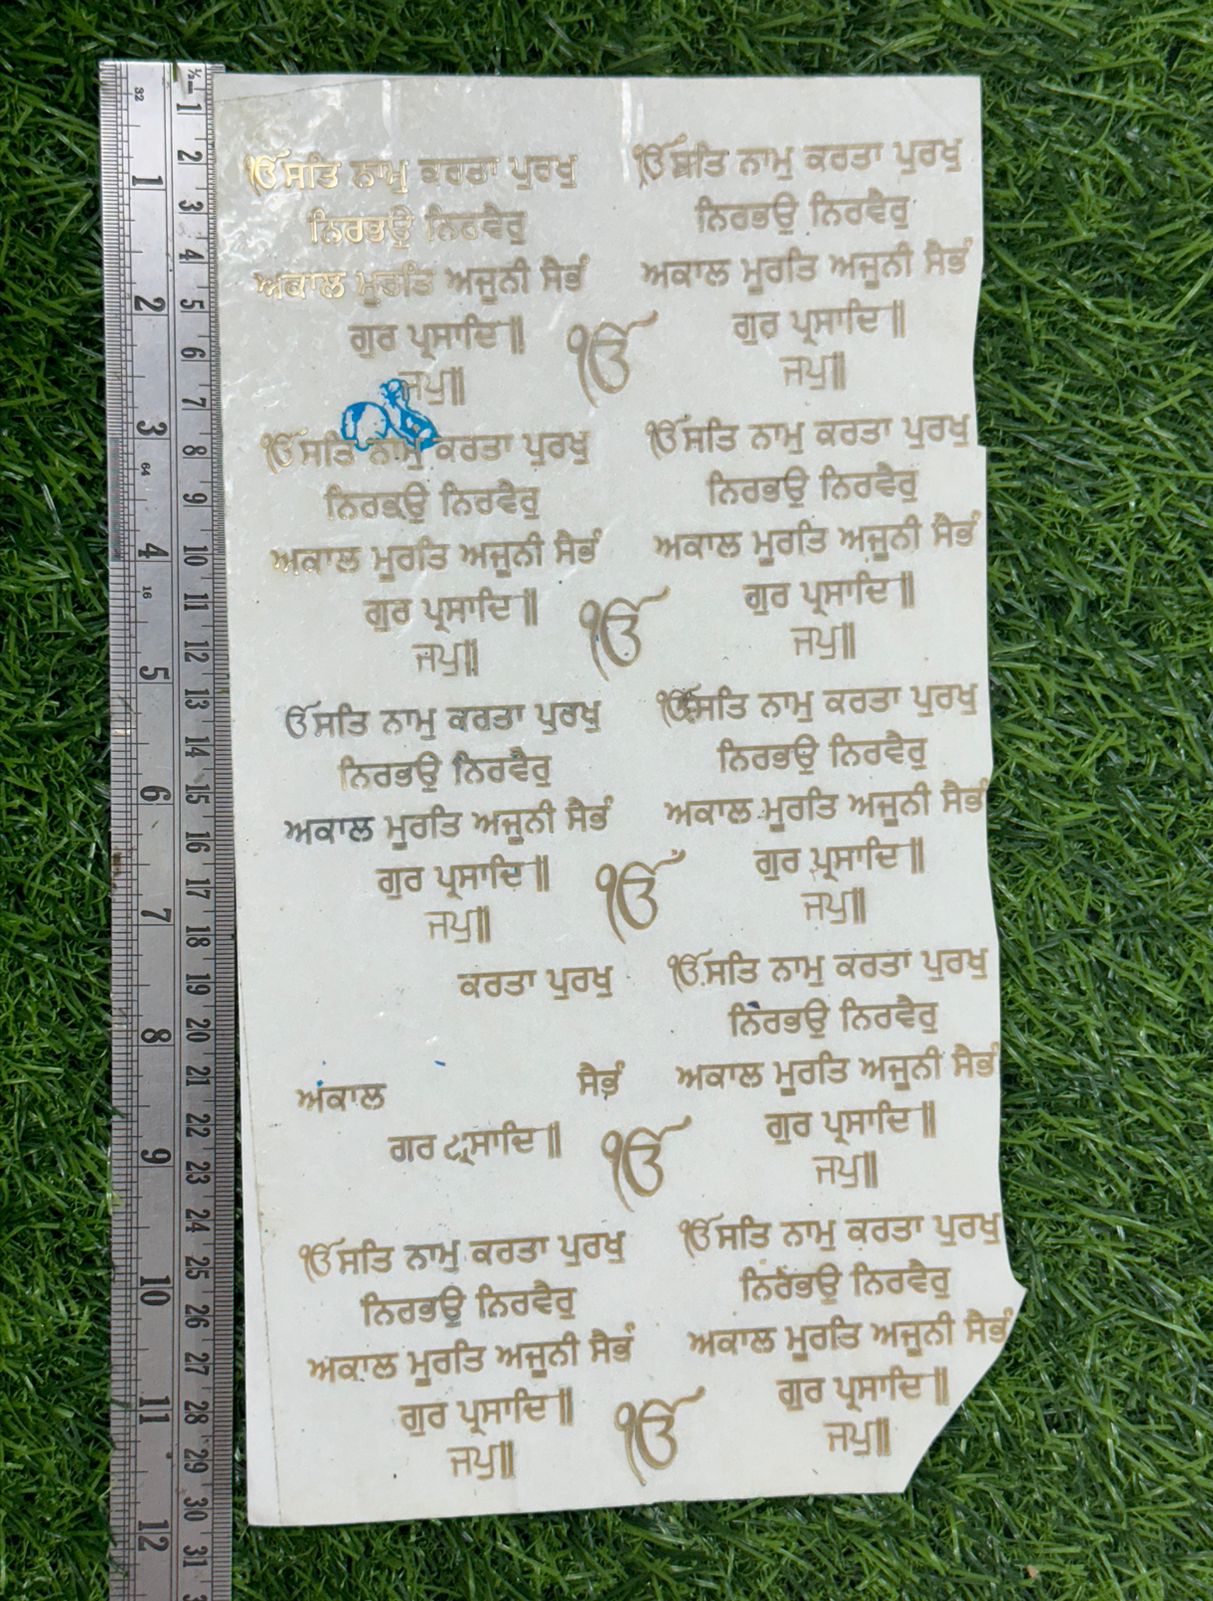 ੴ ਸਤਿ ਨਾਮੁ ਕਰਤਾ ਪੁਰਖੁ
ਨਿਰਭਉ ਨਿਰਵੈਰੁ
ਅਕਾਲ ਮੂਰਤਿ ਅਜੂਨੀ ਸੈਭੰ
ਗੁਰ ਪ੍ਰਸਾਦਿ॥
ਜਪੁ॥
ੴ ਸਤਿ ਨਾਮੁ ਕਰਤਾ ਪੁਰਖੁ
ਨਿਰਭਉ ਨਿਰਵੈਰੁ
ਅਕਾਲ ਮੂਰਤਿ ਅਜੂਨੀ ਸੈਭੰ
ਗੁਰ ਪ੍ਰਸਾਦਿ॥
ਜਪੁ॥
ੴ
ੴ ਸਤਿ ਨਾਮੁ ਕਰਤਾ ਪੁਰਖੁ
ਨਿਰਭਉ ਨਿਰਵੈਰੁ
ਅਕਾਲ ਮੂਰਤਿ ਅਜੂਨੀ ਸੈਭੰ
ਗੁਰ ਪ੍ਰਸਾਦਿ॥
ਜਪੁ॥
ੴ ਸਤਿ ਨਾਮੁ ਕਰਤਾ ਪੁਰਖੁ
ਨਿਰਭਉ ਨਿਰਵੈਰੁ
ਅਕਾਲ ਮੂਰਤਿ ਅਜੂਨੀ ਸੈਭੰ
ਗੁਰ ਪ੍ਰਸਾਦਿ॥
ਜਪੁ॥
ੴ
ਓ ਸਤਿ ਨਾਮੁ ਕਰਤਾ ਪੁਰਖੁ
ਨਿਰਭਉ ਨਿਰਵੈਰੁ
ਅਕਾਲ ਮੂਰਤਿ ਅਜੂਨੀ ਸੈਭੰ
ਗੁਰ ਪ੍ਰਸਾਦਿ॥
ਜਪੁ॥
ੴ ਸਤਿ ਨਾਮੁ ਕਰਤਾ ਪੁਰਖੁ
ਨਿਰਭਉ ਨਿਰਵੈਰੁ
ਅਕਾਲ ਮੂਰਤਿ ਅਜੂਨੀ ਸੈਭੰ
ਗੁਰ ਪ੍ਰਸਾਦਿ॥
ਜਪੁ॥
ੴ
ਕਰਤਾ ਪੁਰਖੁ
ਅਕਾਲ ਸੈਭੰ
ਗਰ
ੴ ਸਤਿ ਨਾਮੁ ਕਰਤਾ ਪੁਰਖੁ
ਨਿਰਭਉ ਨਿਰਵੈਰੁ
ਅਕਾਲ ਮੂਰਤਿ ਅਜੂਨੀ ਸੈਭੰ
ਗੁਰ ਪ੍ਰਸਾਦਿ॥
ਜਪੁ॥
ੴ
ੴ ਸਤਿ ਨਾਮੁ ਕਰਤਾ ਪੁਰਖੁ
ਨਿਰਭਉ ਨਿਰਵੈਰੁ
ਅਕਾਲ ਮੂਰਤਿ ਅਜੂਨੀ ਸੈਭੰ
ਗੁਰ ਪ੍ਰਸਾਦਿ॥
ਜਪੁ॥
ੴ ਸਤਿ ਨਾਮੁ ਕਰਤਾ ਪੁਰਖੁ
ਨਿਰਭਉ ਨਿਰਵੈਰੁ
ਅਕਾਲ ਮੂਰਤਿ ਅਜੂਨੀ ਸੈਭੰ
ਗੁਰ ਪ੍ਰਸਾਦਿ॥
ਜਪੁ॥
ੴ
1 2 3 4 5 6 7 8 9 10 11 12 13 14 15 16 17 18 19 20 21 22 23 24 25 26 27 28 29 30 31
32 1 2 3 64 4 16 5 6 7 8 9 10 11 12